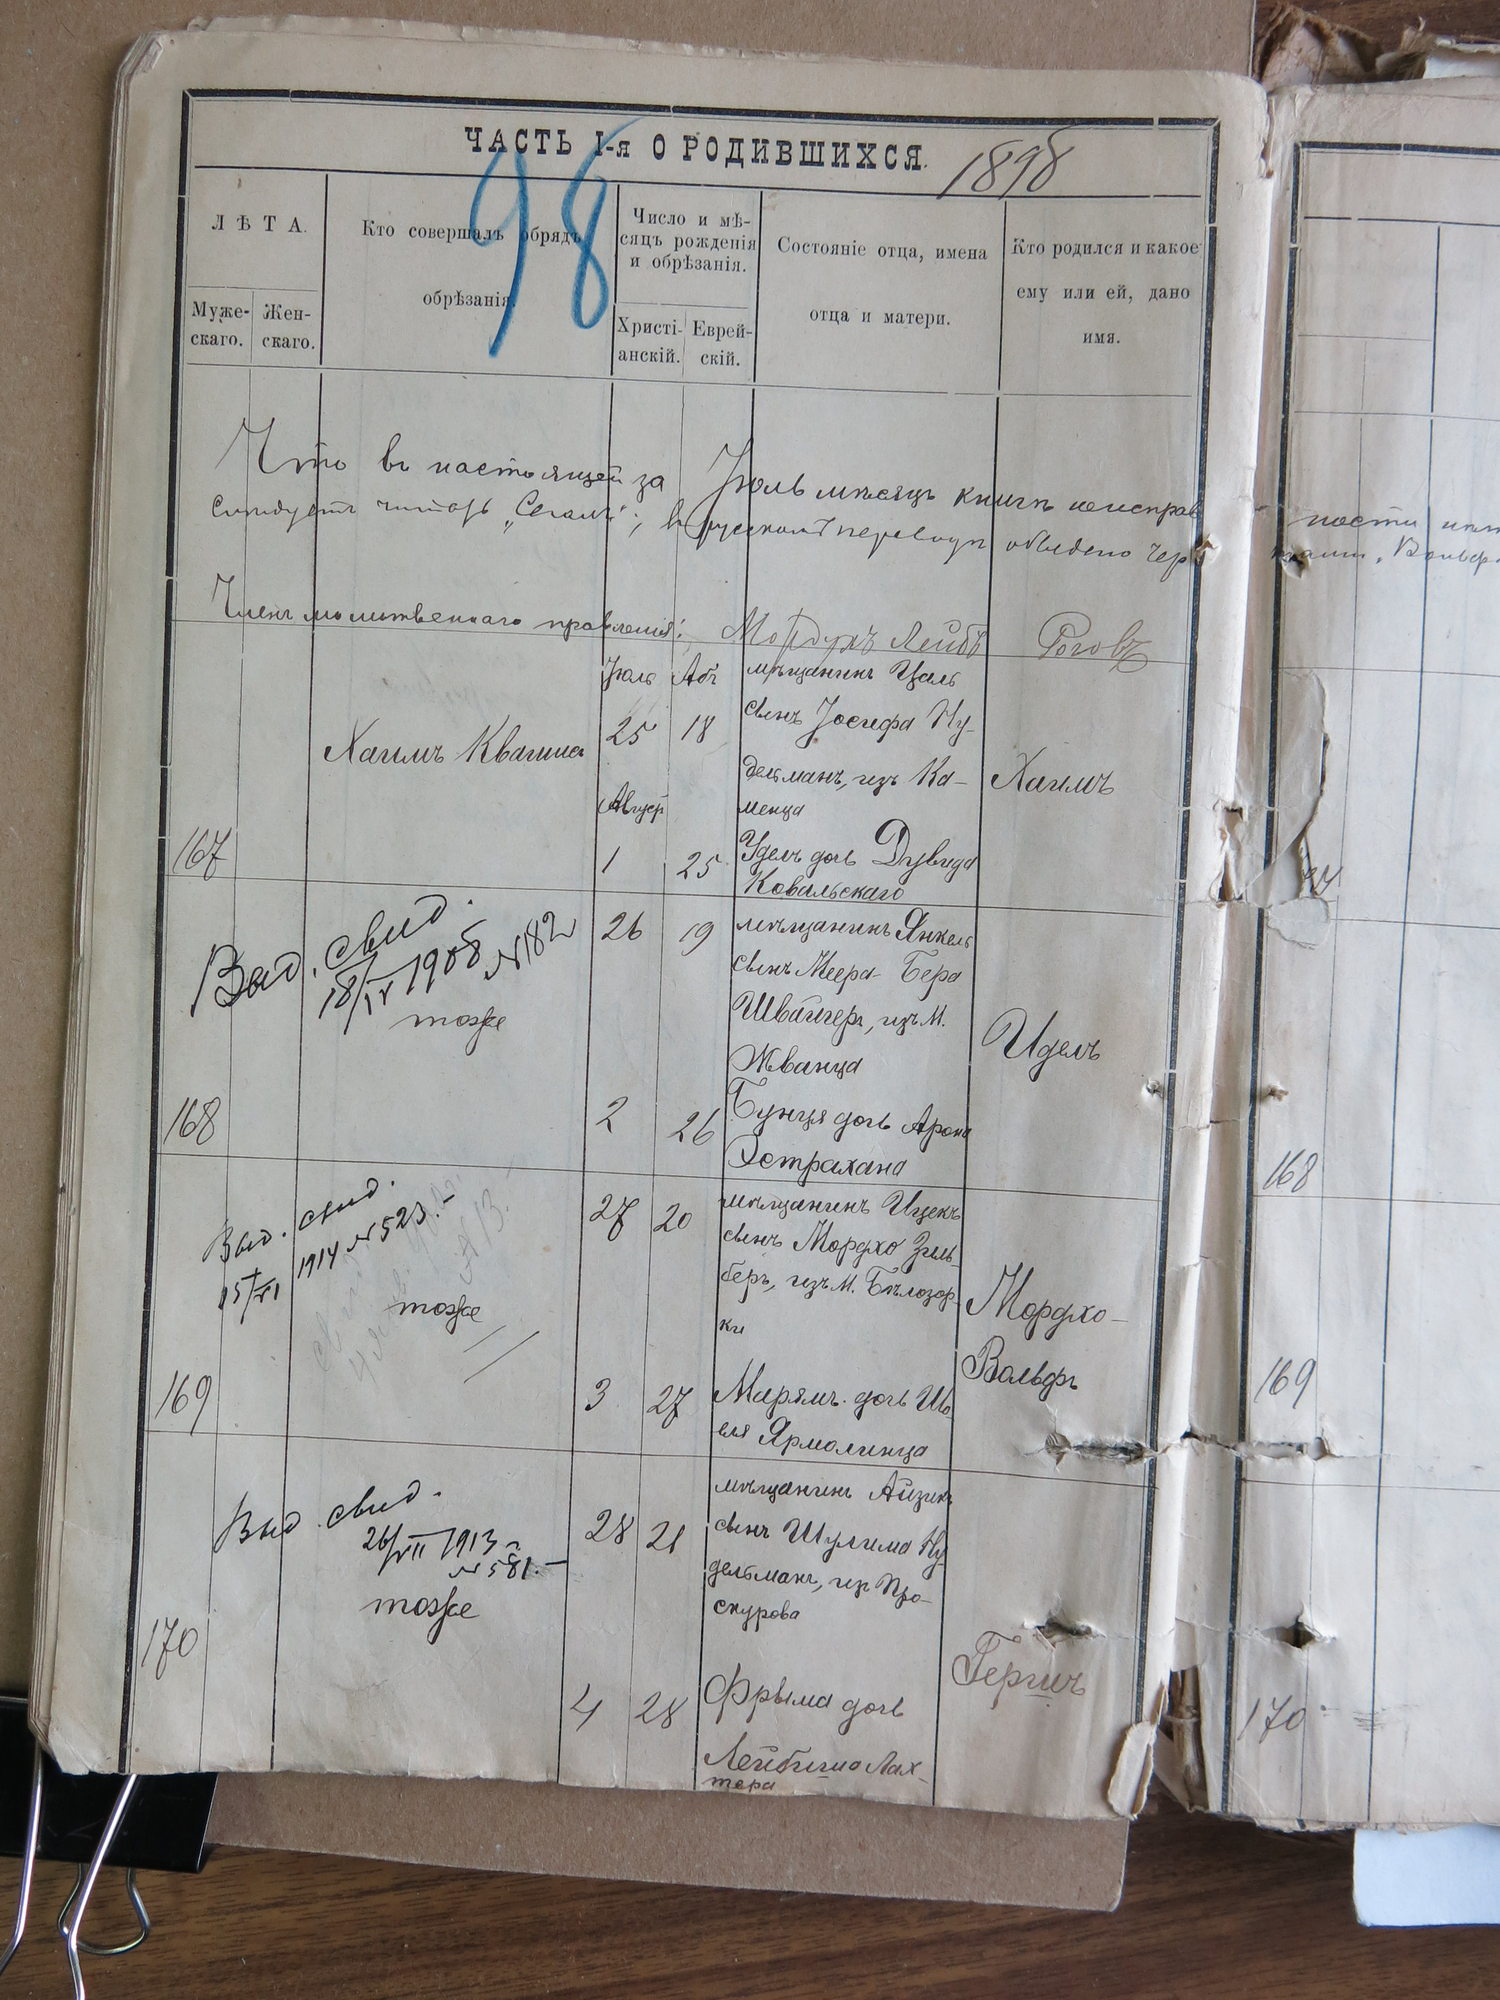 ЧАСТЬ I-я О РОДИВШИХСЯ. 1898
98
ЛѢТА.
Муже-
скаго.
Жен-
скаго.
Кто совершалъ обрядъ
обрѣзанія.
Число и мѣ-
сяцъ рожденія
и обрѣзанія.
Христі-
анскій.
Еврей-
скій.
Состояніе отца, имена
отца и матери.
Кто родился и какое
ему или ей, дано
имя.
Что въ настоящей за Іюль мѣсяцъ книгѣ неисправ
слѣдуетъ читать „Сегалъ“; въ русскомъ переводѣ обведено чер
Членъ молитвеннаго правленія: Мордухъ Лейбъ Роговъ
167
Хаимъ Квашис
Іюль Абъ
25 18
Август
1 25
мѣщанинъ Цаль
сынъ Іосифа Ну-
дельманъ, изъ Ка-
менца
Удель дочь Дувида
Ковальскаго
Хаимъ
Выд. свид.
18/IV 1908 №182
тоже
168
26 19
2 26
мѣщанинъ Янкель
сынъ Меера-Бера
Швайгеръ, изъ м.
Жванца
Бунця дочь Арона
Острахана
Идель
Выд. свид.
15/VI 1914 №523.-
тоже
169
27 20
3 27
мѣщанинъ Ицекъ
сынъ Мордхо Зиль-
беръ, изъ м. Бѣлозор-
ки
Марямъ дочь Шо
еля Ярмолинца
Мордхо-
Вольфъ
Выд. свид.
26/VII 1913 г.
№581.-
тоже
170
28 21
4 28
мѣщанинъ Айзикъ
сынъ Шулима Ну-
дельманъ, изъ Про-
скурова
Фрыма дочь
Лейбиша Лах-
тера
Гершъ
ности
Вольф
168
169
170